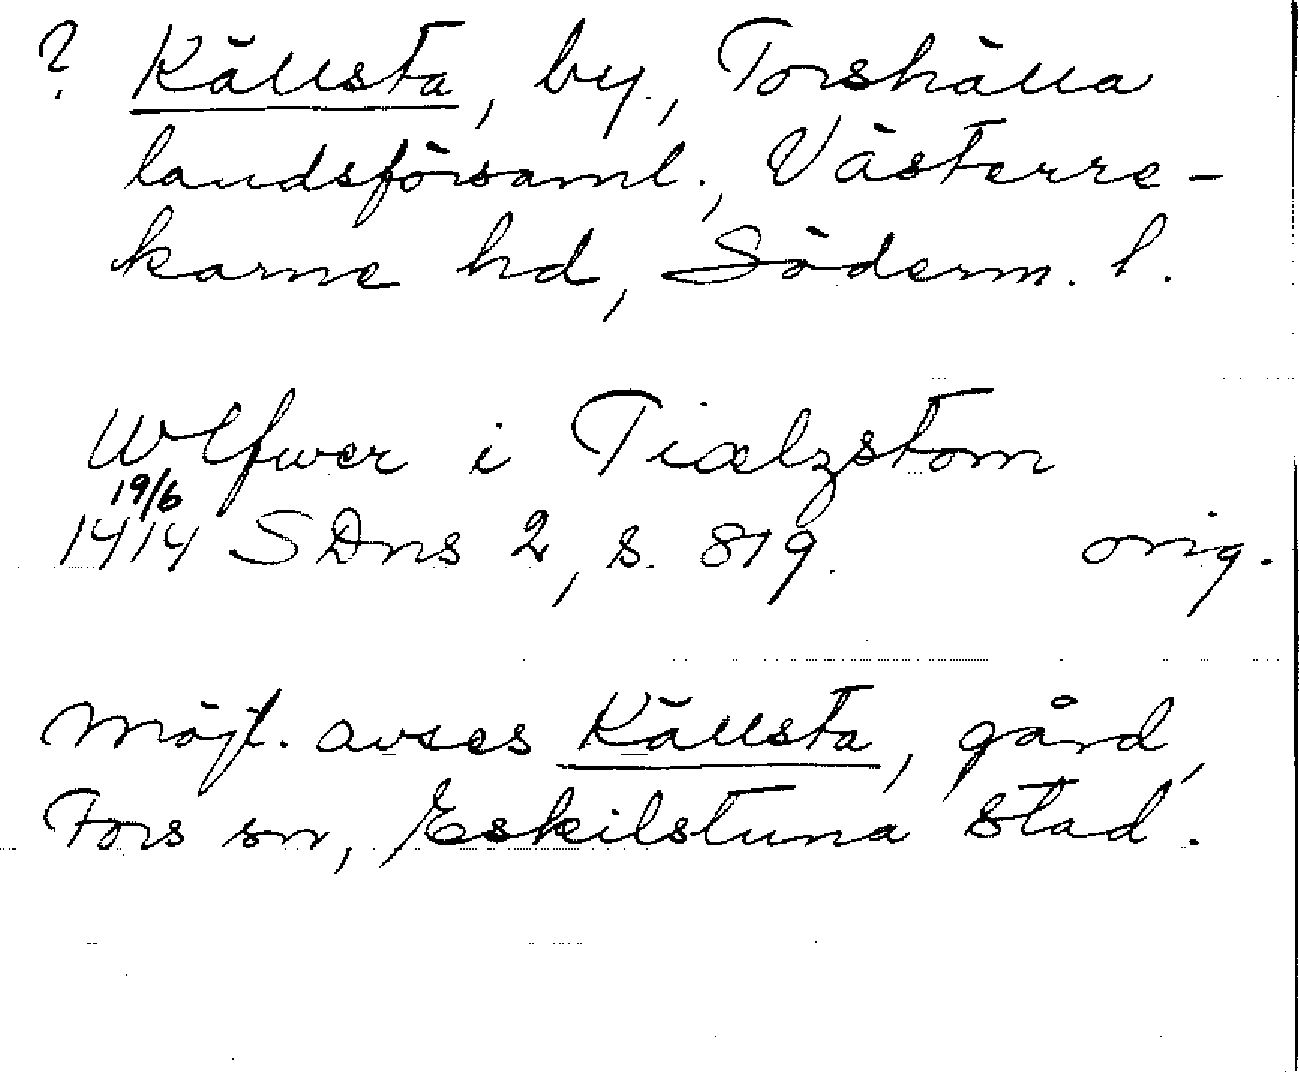 ? Källsta, by, Torshälla
landsförsaml., Västerre-
karne hd, Söderm. l.
Wlfwer i Tiælzstom
19/6
1414 SDns 2, s. 819. orig.
Möjl. avses Källsta, gård,
Fors sn, Eskilstuna stad.